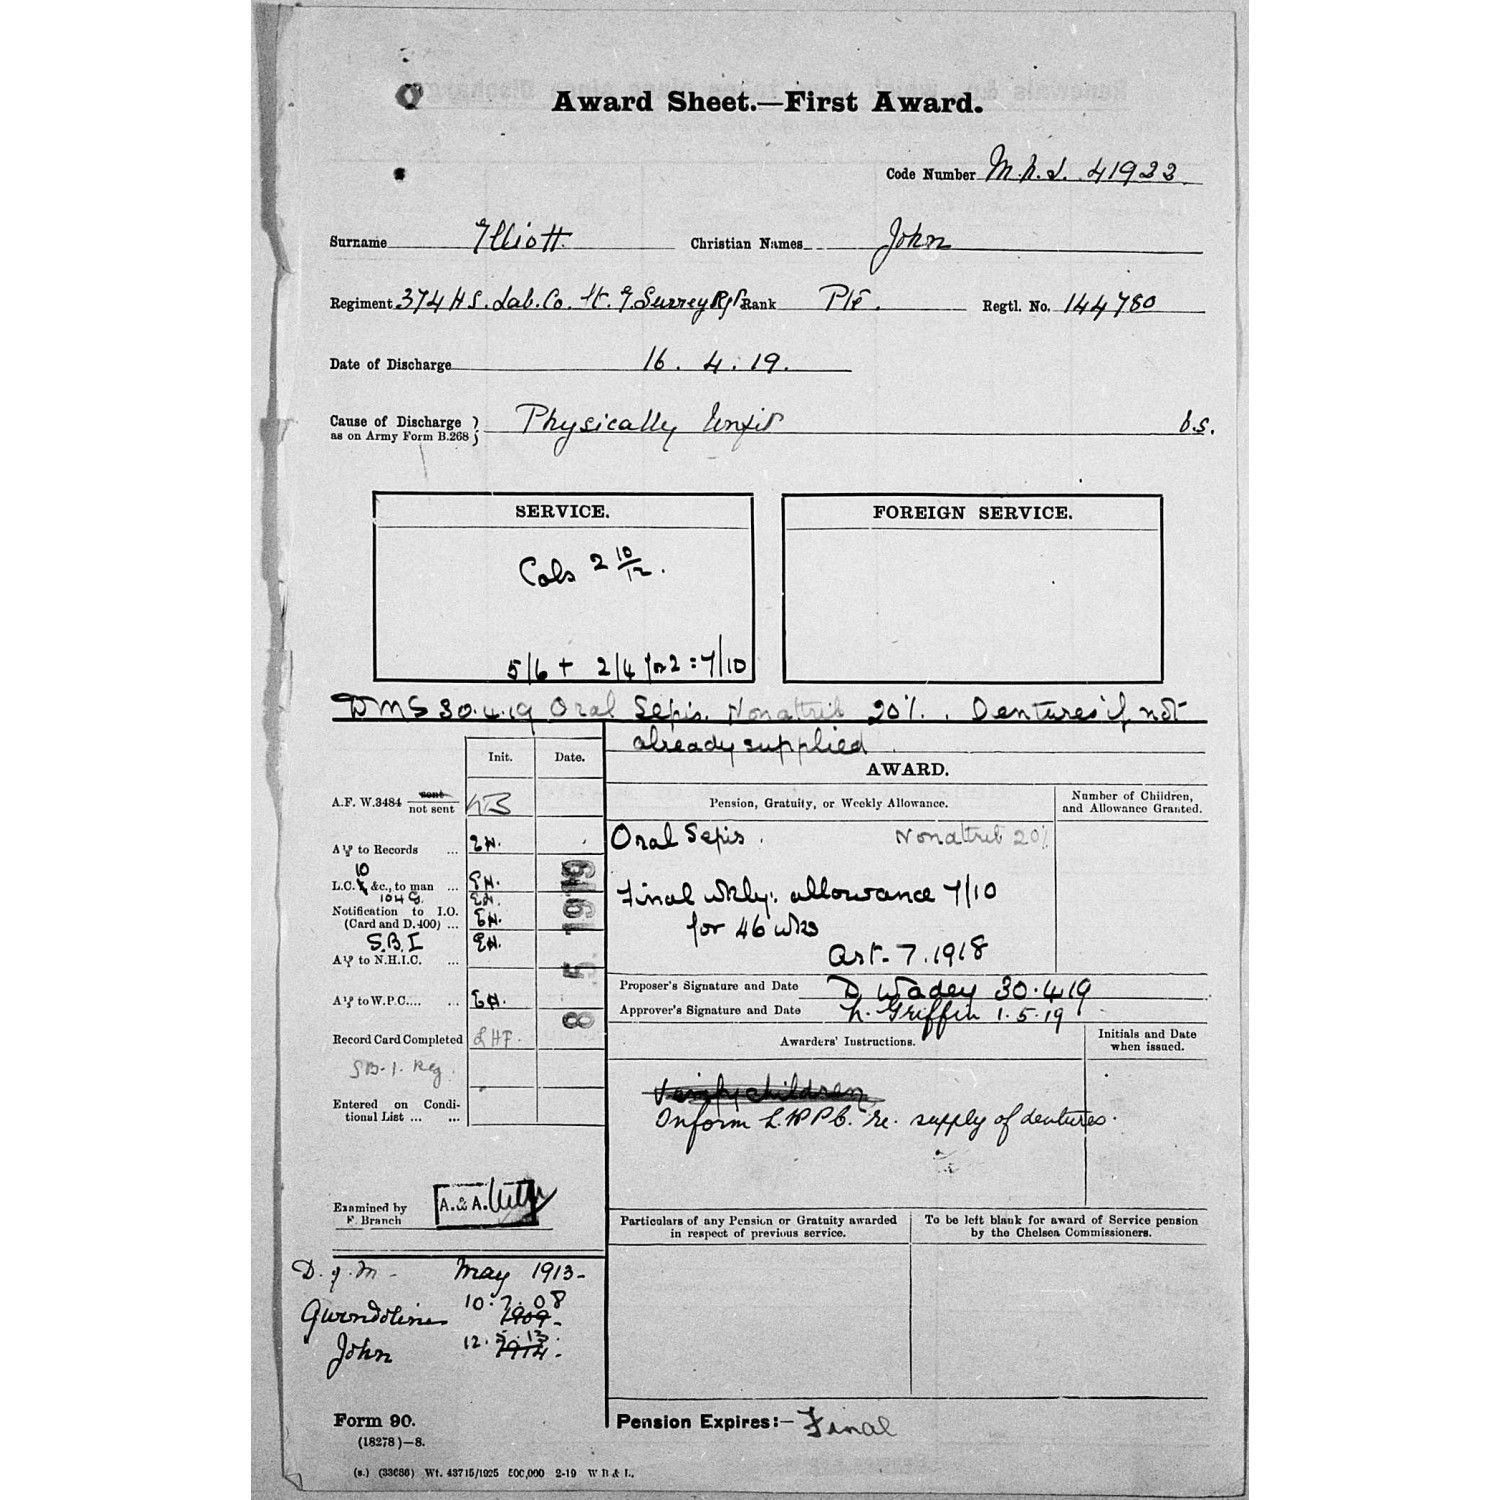 Award Sheet.—First Award.
Code Number M.h.J. 41922
Surname Elliott Christian Names John
Regiment 374 H S. Lab. Co. tt. E Surrey Rgt Rank Pte. Regtl. No. 144780
Date of Discharge 16 . 4 . 19 .
Cause of Discharge as on Army Form B.268 Physically Unfit b.s.
SERVICE. FOREIGN SERVICE.
Cols 2 10/12.
5/6 + 2/4 for 2 : 7/10
DMS 30.4.19 Oral Sepsis. Nonattrib 20%. Dentures if not
already supplied
Init. Date. AWARD.
A.F. W.3484 sent not sent
Pension, Gratuity, or Weekly Allowance. Number of Children, and Allowance Granted.
Oral Sepsis . Nonattrib 20%
A to Records ... EH.
10
L.C. &c., to man ... EH.
104 G. EH.
Final wkly. allowance 7/10
for 46 wks
Notification to I.O. (Card and D.400) ... EH.
S.B.I EH.
A to N.H.I.C. ...
Art. 7. 1918
8 5 1919
Proposer's Signature and Date D Wadey 30.4.19
A to W.P.C.... ... EH.
Approver's Signature and Date h. Griffin 1.5.19
Record Card Completed LHF.
Awarders' Instructions. Initials and Date when issued.
SB-1. Reg.
Entered on Conditional List ... ...
children
Inform L.W.P.C. re. supply of dentures.
Examined by F. Branch A. & A.
Particulars of any Pension or Gratuity awarded in respect of previous service.
To be left blank for award of Service pension by the Chelsea Commissioners.
D. of M - May 1913-
Gwendoline 10.7.08
1909-
John 12.5.13.
1914.
Form 90. Pension Expires:— Final
(18278)—8.
(s.) (33686) Wt. 43715/1925 500,000 2-19 W B & L.